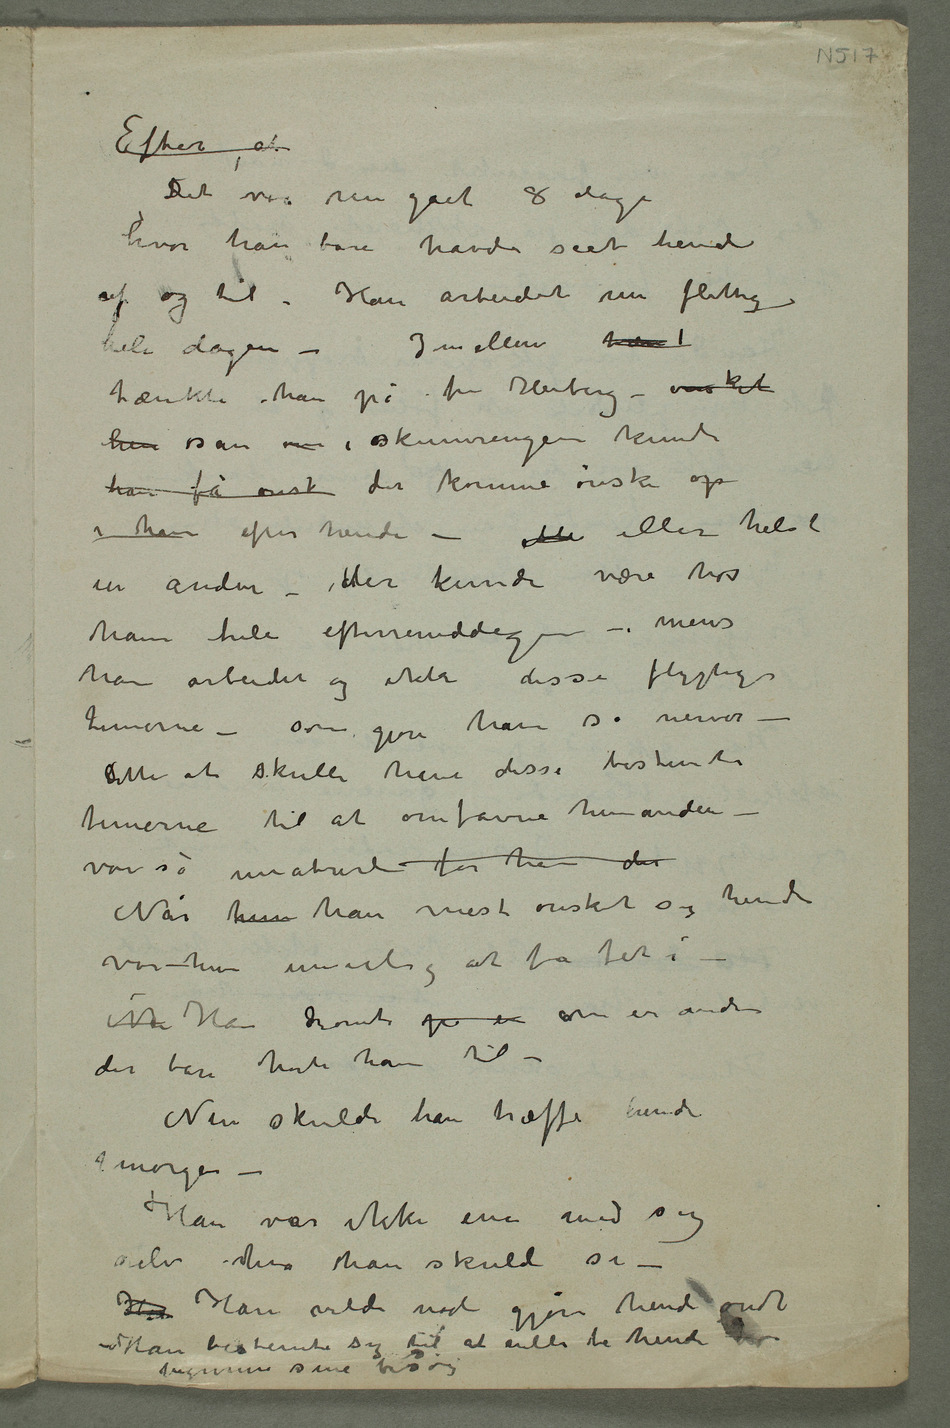 N517
Efter at
Det var nu gået 8 dage
hvor han bare havde seet hende
af og til – Han arbeidet nu flittig
hele dagen – Imellem
tænkte han på fru Heiberg – ønsket
hen især om i skumringen kunde
han få ønsk der komme ønske op
i ham efter hende – eller helst
en anden – der kunde være hos
ham hele eftermiddagen – mens
han arbeidet og ikke disse flygtige
timerne – som gjøre ham så nervøs –
Dette at skulle have disse bestemte
timerne til at omfavne hinanden –
var så unaturlig for ham der
Når hun han mest ønsket sig hende
var hun umulig at få fat i –
Nu Han drømte på en om en anden
der bare hørte ham til –
Nu skulde han træffe hende
imorgen –
Han var ikke enig med sig
selv hva han skulde si –
Han Han vilde nødt gjøre hende ondt
Han bestemte sig til at ville la hende
begynne sine besøg